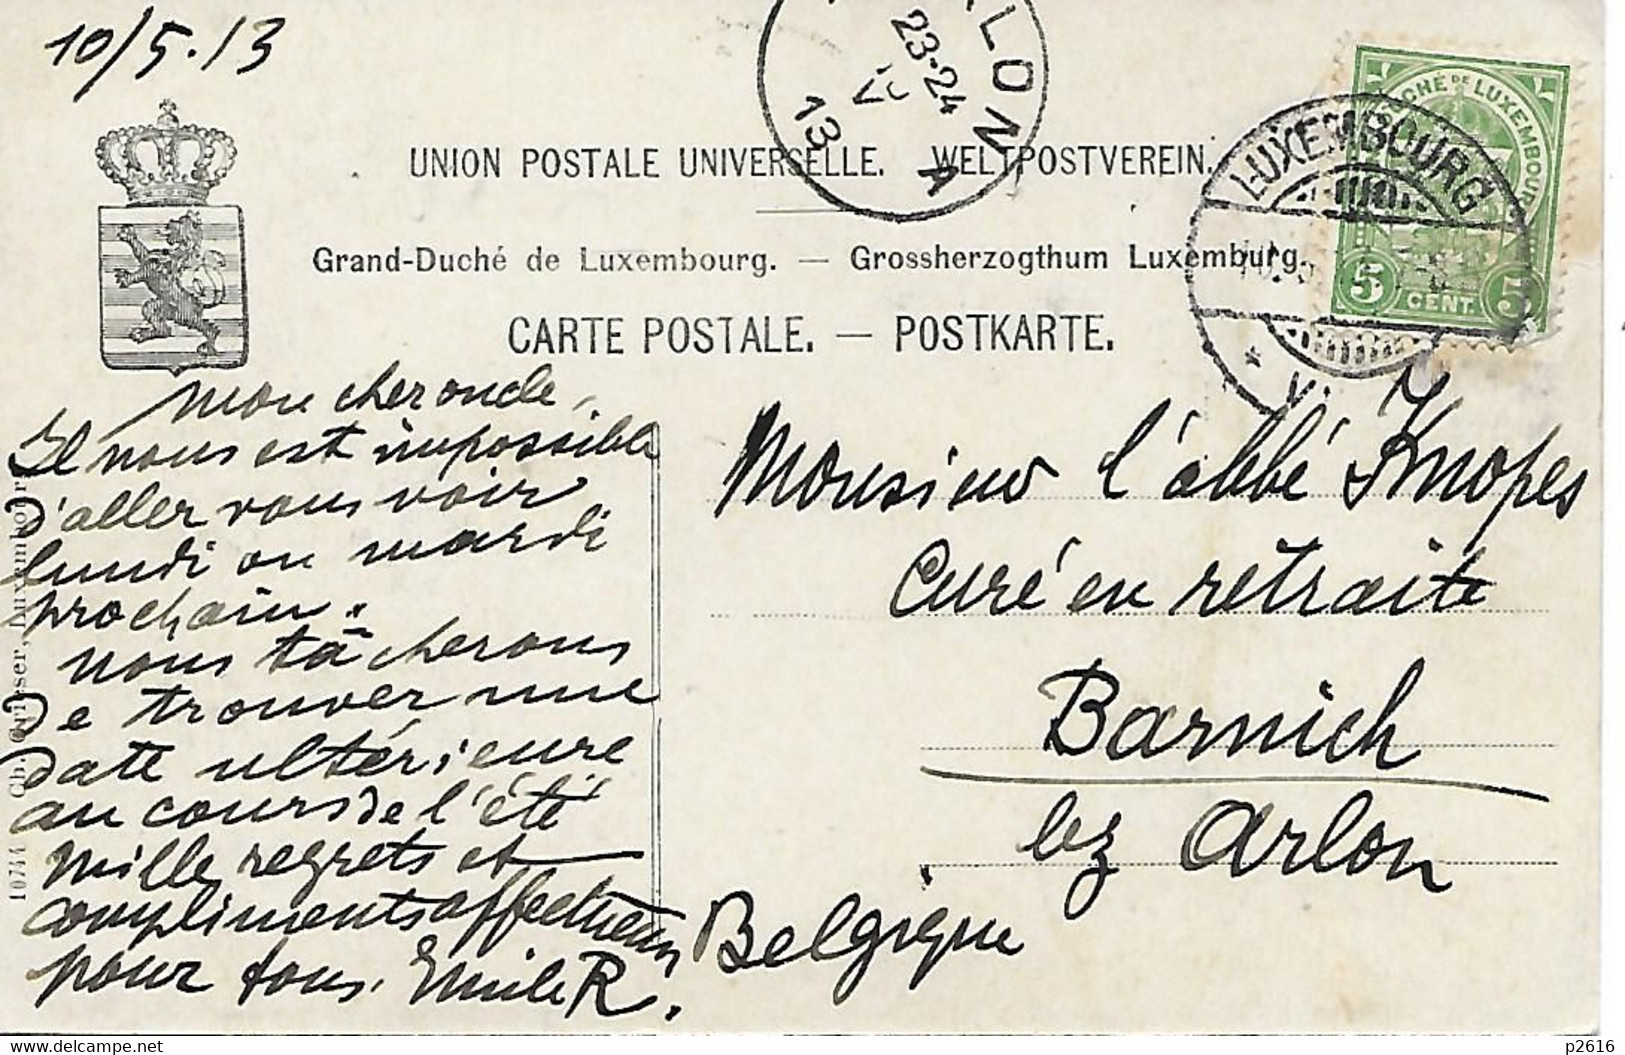 10/5.13
ARLON
23-24
10 V
13
A
UNION POSTALE UNIVERSELLE. WELTPOSTVEREIN.
Grand-Duché de Luxembourg. — Grossherzogthum Luxemburg.
CARTE POSTALE. — POSTKARTE.
GRAND DUCHÉ DE LUXEMBOURG
5 CENT. 5
LUXEMBOURG
* V.
mon cher oncle,
Il nous est impossible
d'aller vous voir
lundi ou mardi
prochain.
nous tâcherons
de trouver une
date ultérieure
au cours de l'été
Mille regrets et
compliments affectueux
pour tous. Emile R.
Monsieur l'abbé Knopes
Curé en retraite
Barnich
lez Arlon
Belgique
10744 Ch. Grieser, Luxembourg
delcampe.net
p2616